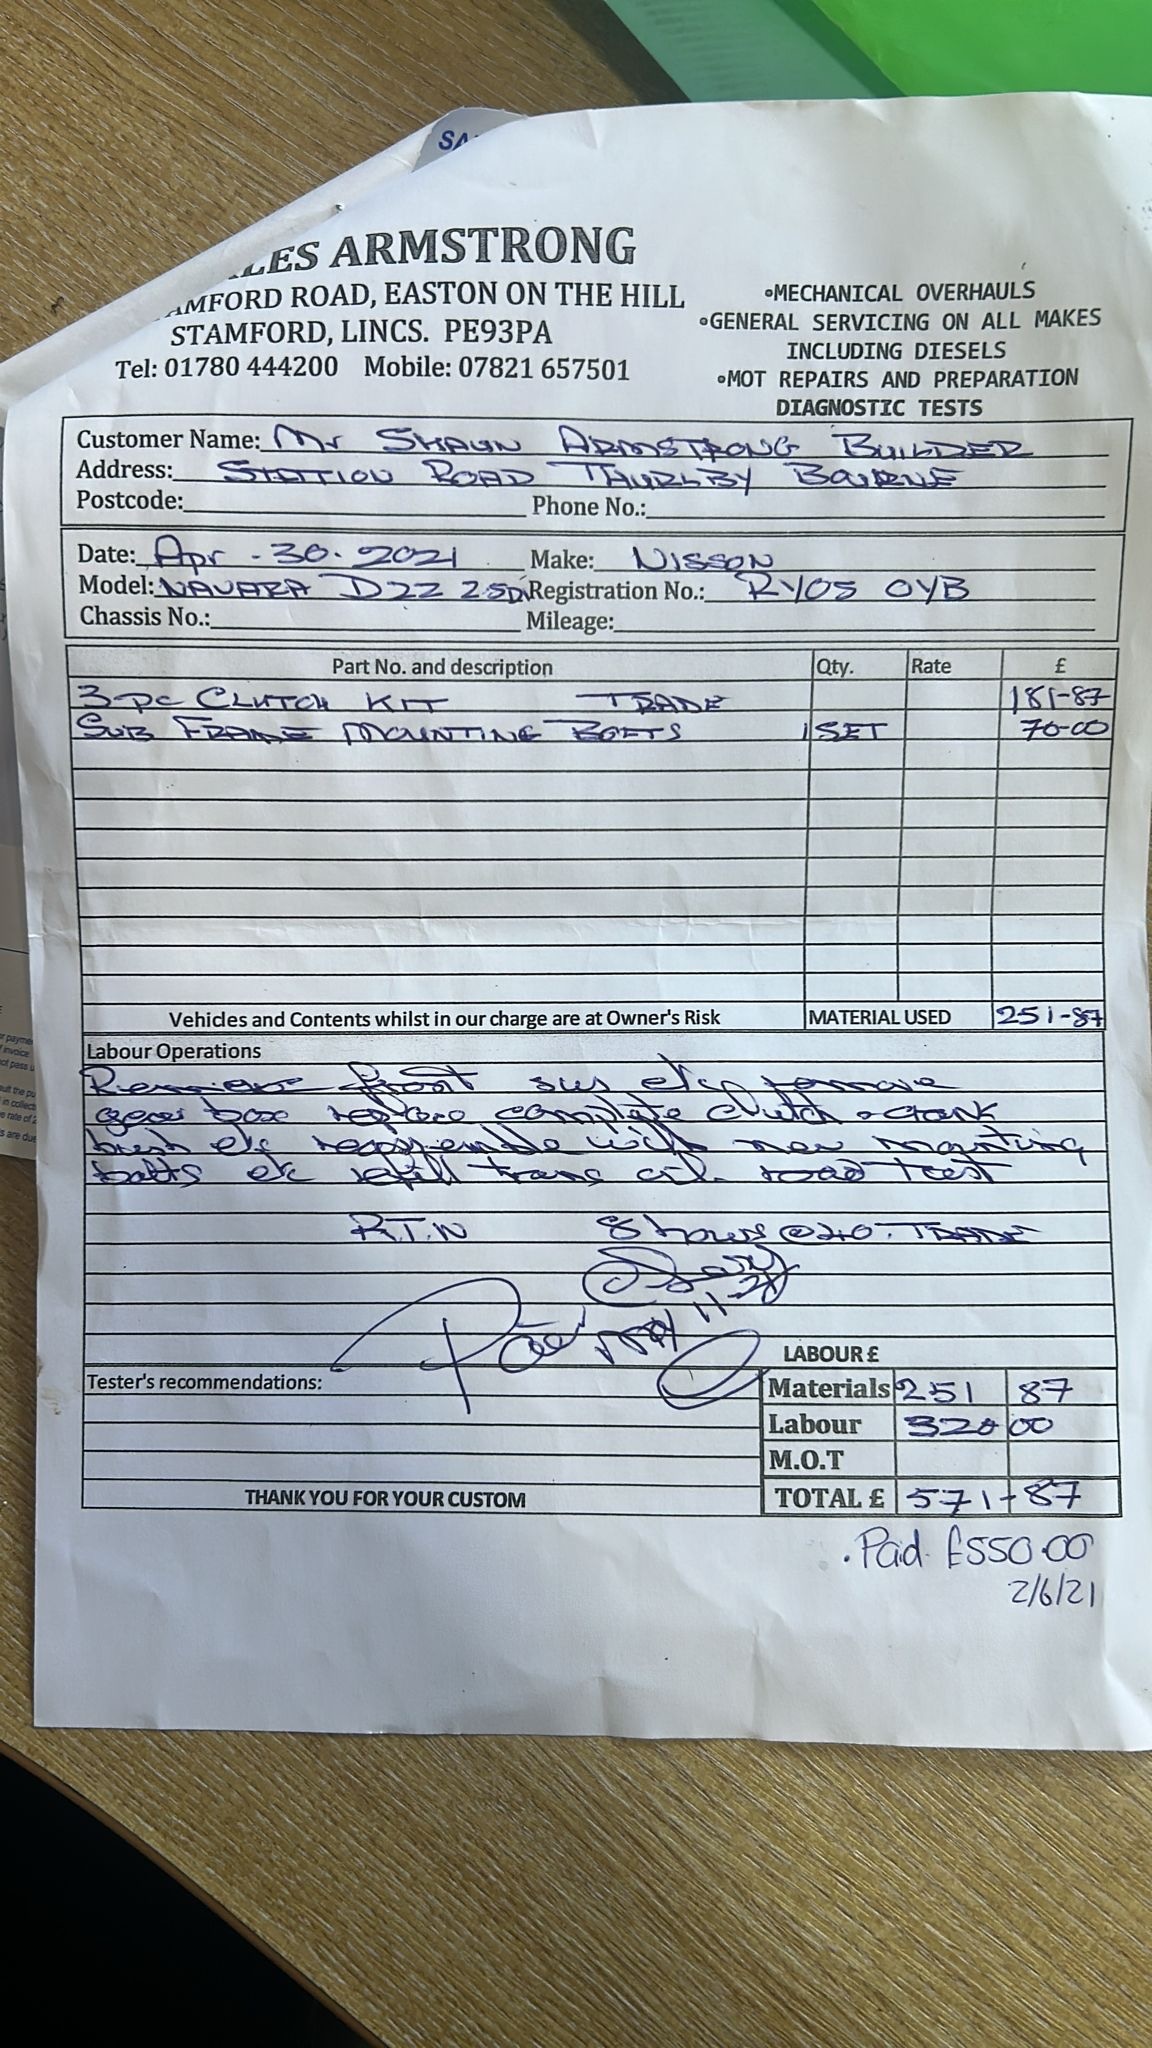 LES ARMSTRONG
AMFORD ROAD, EASTON ON THE HILL
STAMFORD, LINCS. PE93PA
Tel: 01780 444200 Mobile: 07821 657501
•MECHANICAL OVERHAULS
•GENERAL SERVICING ON ALL MAKES
INCLUDING DIESELS
•MOT REPAIRS AND PREPARATION
DIAGNOSTIC TESTS
Customer Name: Mr SHAUN ARMSTRONG BUILDER
Address: STATION ROAD THURLBY BOURNE
Postcode: Phone No.:
Date: Apr - 30. 2021 Make: NISSON
Model: NAVARA D22 2.5Di Registration No.: RY05 OYB
Chassis No.: Mileage:
Part No. and description Qty. Rate £
3-pc CLUTCH KIT TRADE 181-87
SUB FRAME MOUNTING BOLTS 1 SET 70-00
Vehicles and Contents whilst in our charge are at Owner's Risk MATERIAL USED 251-87
Labour Operations
Remove front sus etc, remove
gear box replace complete clutch + crank
bush etc reassemble with new mounting
bolts etc refill trans oil. road test
R.T.N 8 hours @ 40. TRADE
LABOUR £
Tester's recommendations:
Materials 251 87
Labour 320 00
M.O.T
THANK YOU FOR YOUR CUSTOM
TOTAL £ 571-87
Paid £550.00
2/6/21